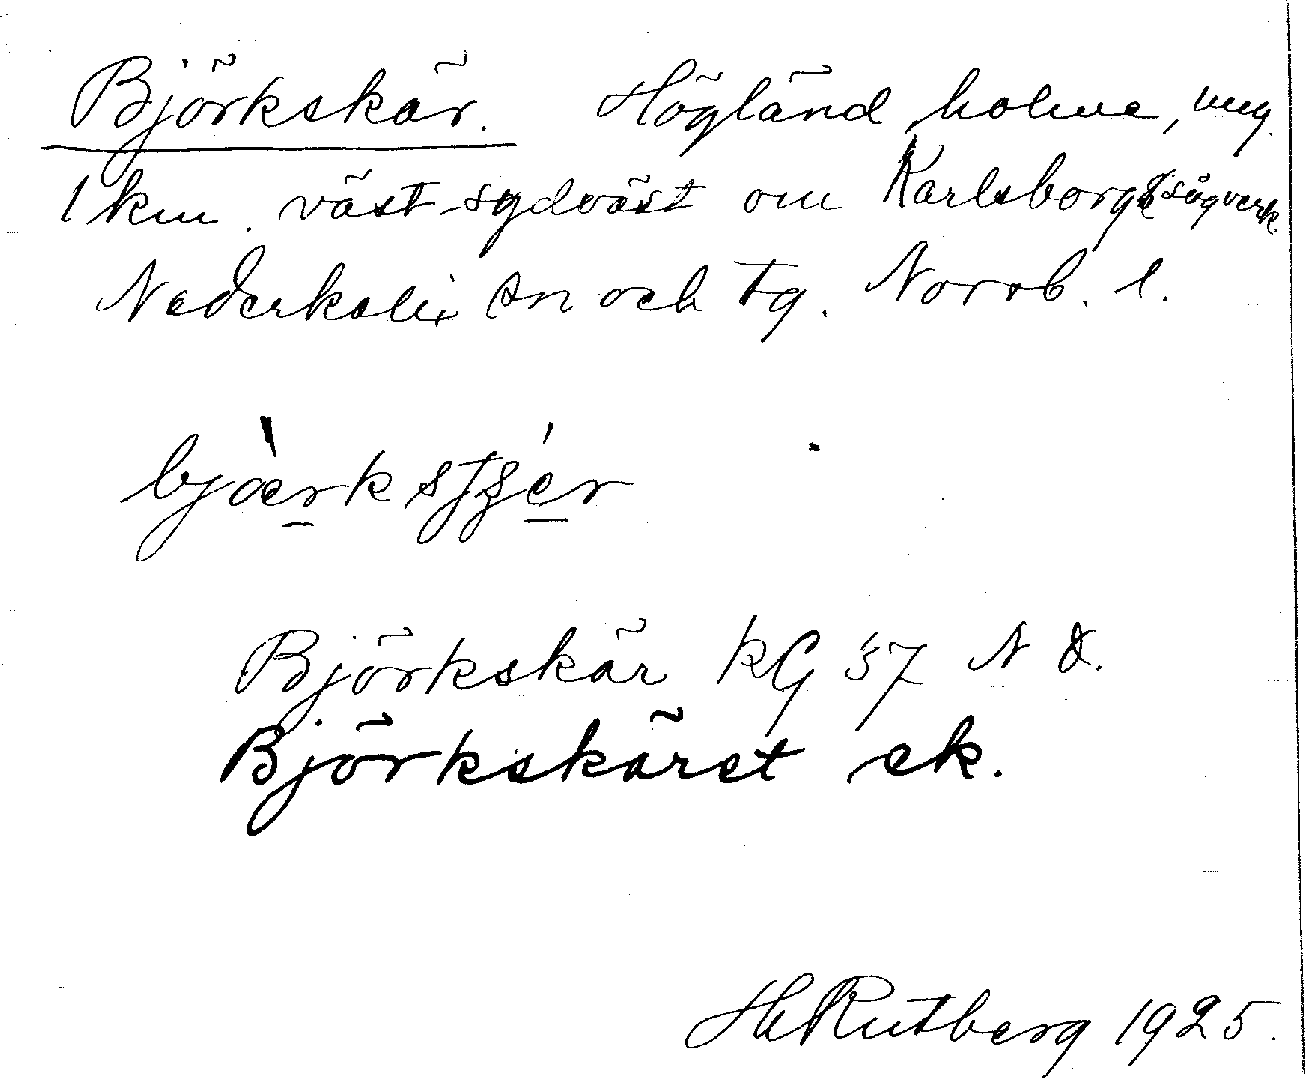 Björkskär. Högländ holme, ung.
1 km. väst-sydväst om Karlsborgs sågverk.
Nederkalix sn och tg. Norrb. l.
Björkskär KG 57 N
Björkskäret ek.
H Rutberg 1925.